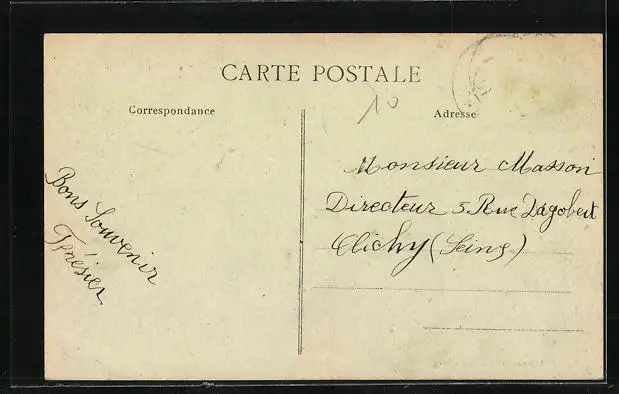 CARTE POSTALE
Correspondance
Adresse
10
Monsieur Masson
Directeur 5 Rue Dagobert
Clichy (Seine)
Bons Souvenir